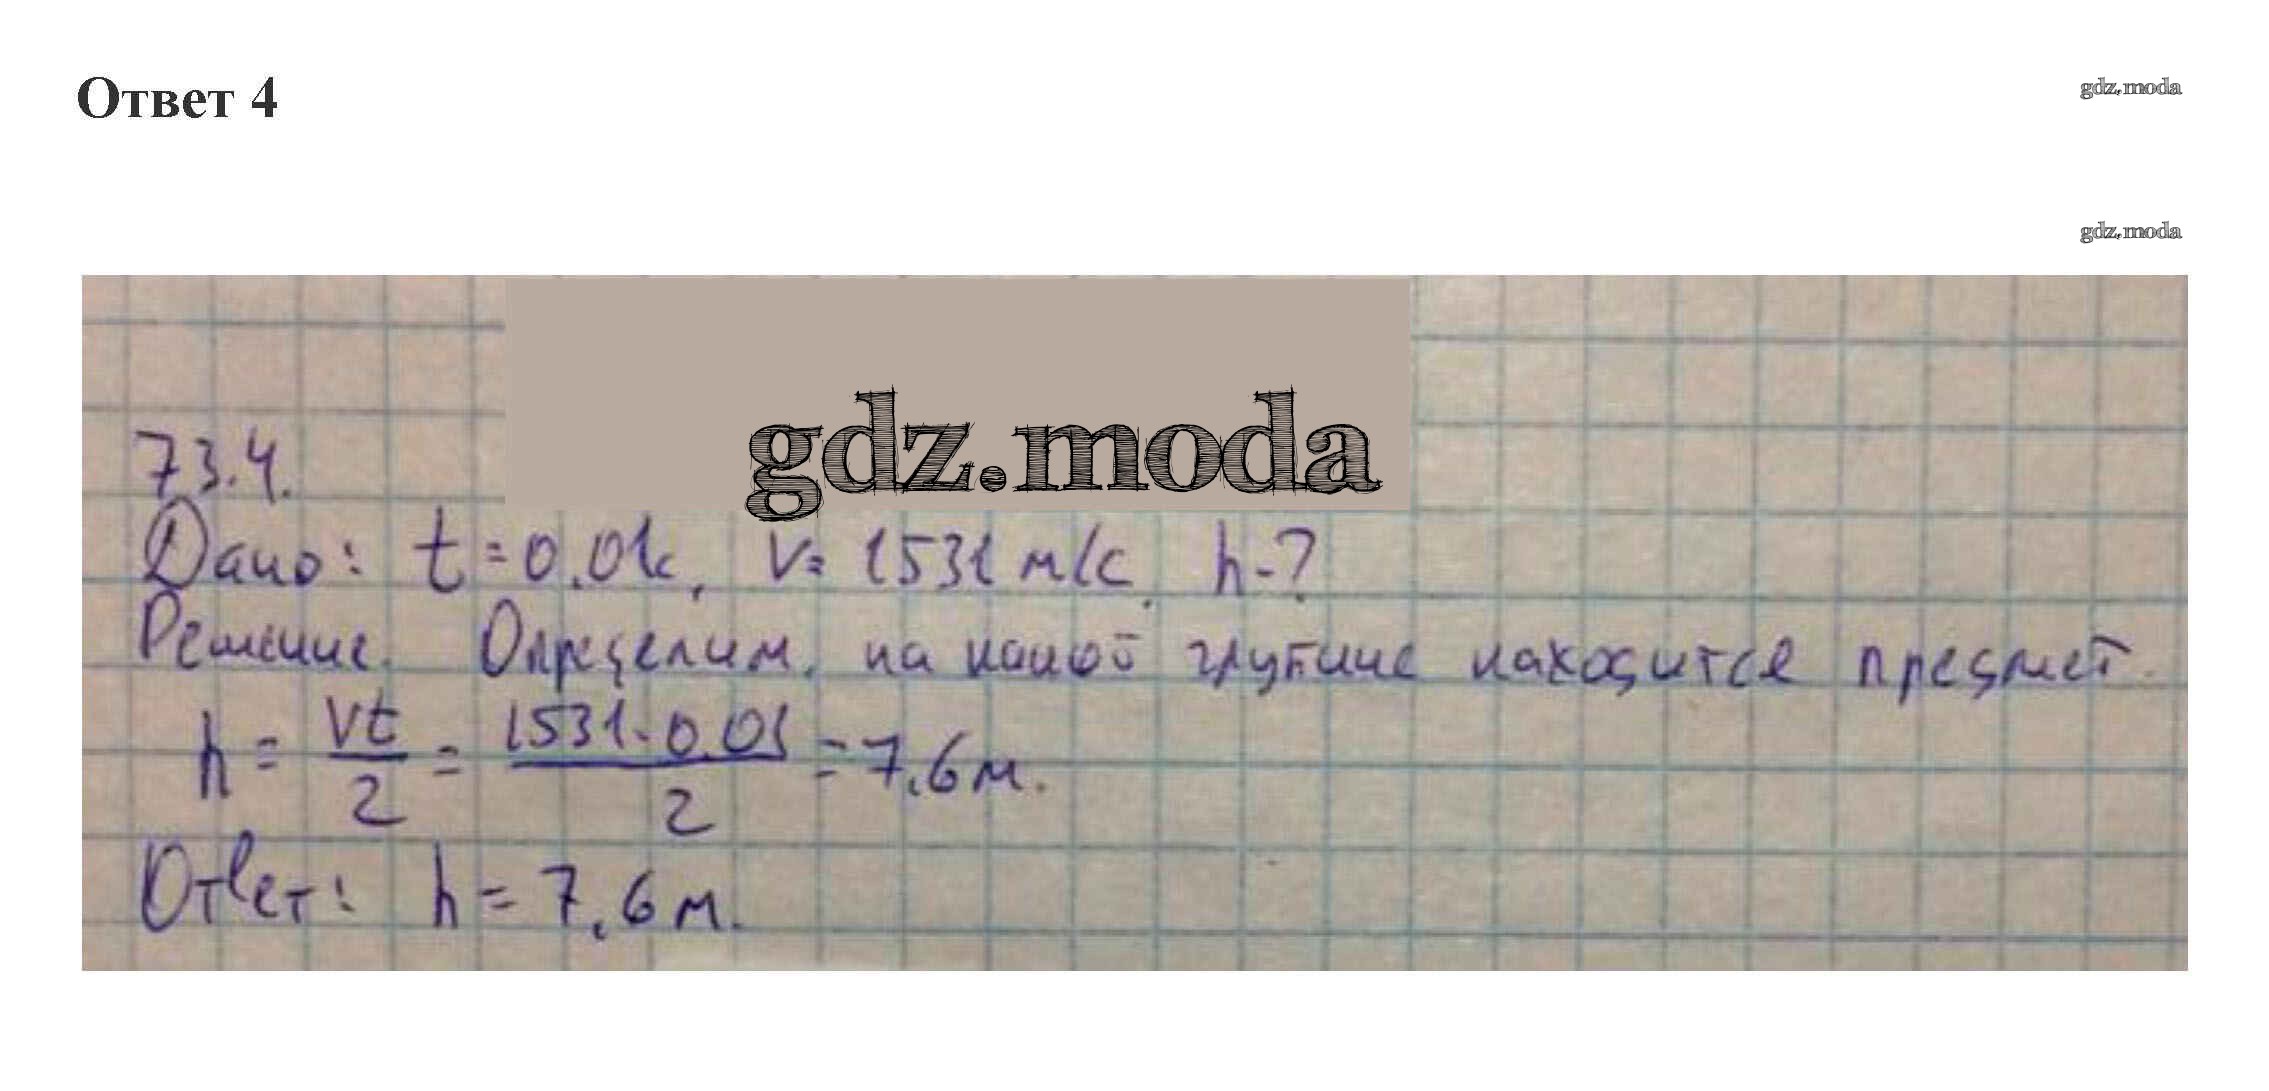 Ответ 4
gdz.moda
gdz.moda
gdz.moda
73.4.
Дано: t = 0.01с, V= 1531 м/с, h-?
Решение. Определим, на какой глубине находится предмет.
h = Vt/2 = 1531·0.01/2 = 7,6 м.
Ответ: h = 7,6 м.